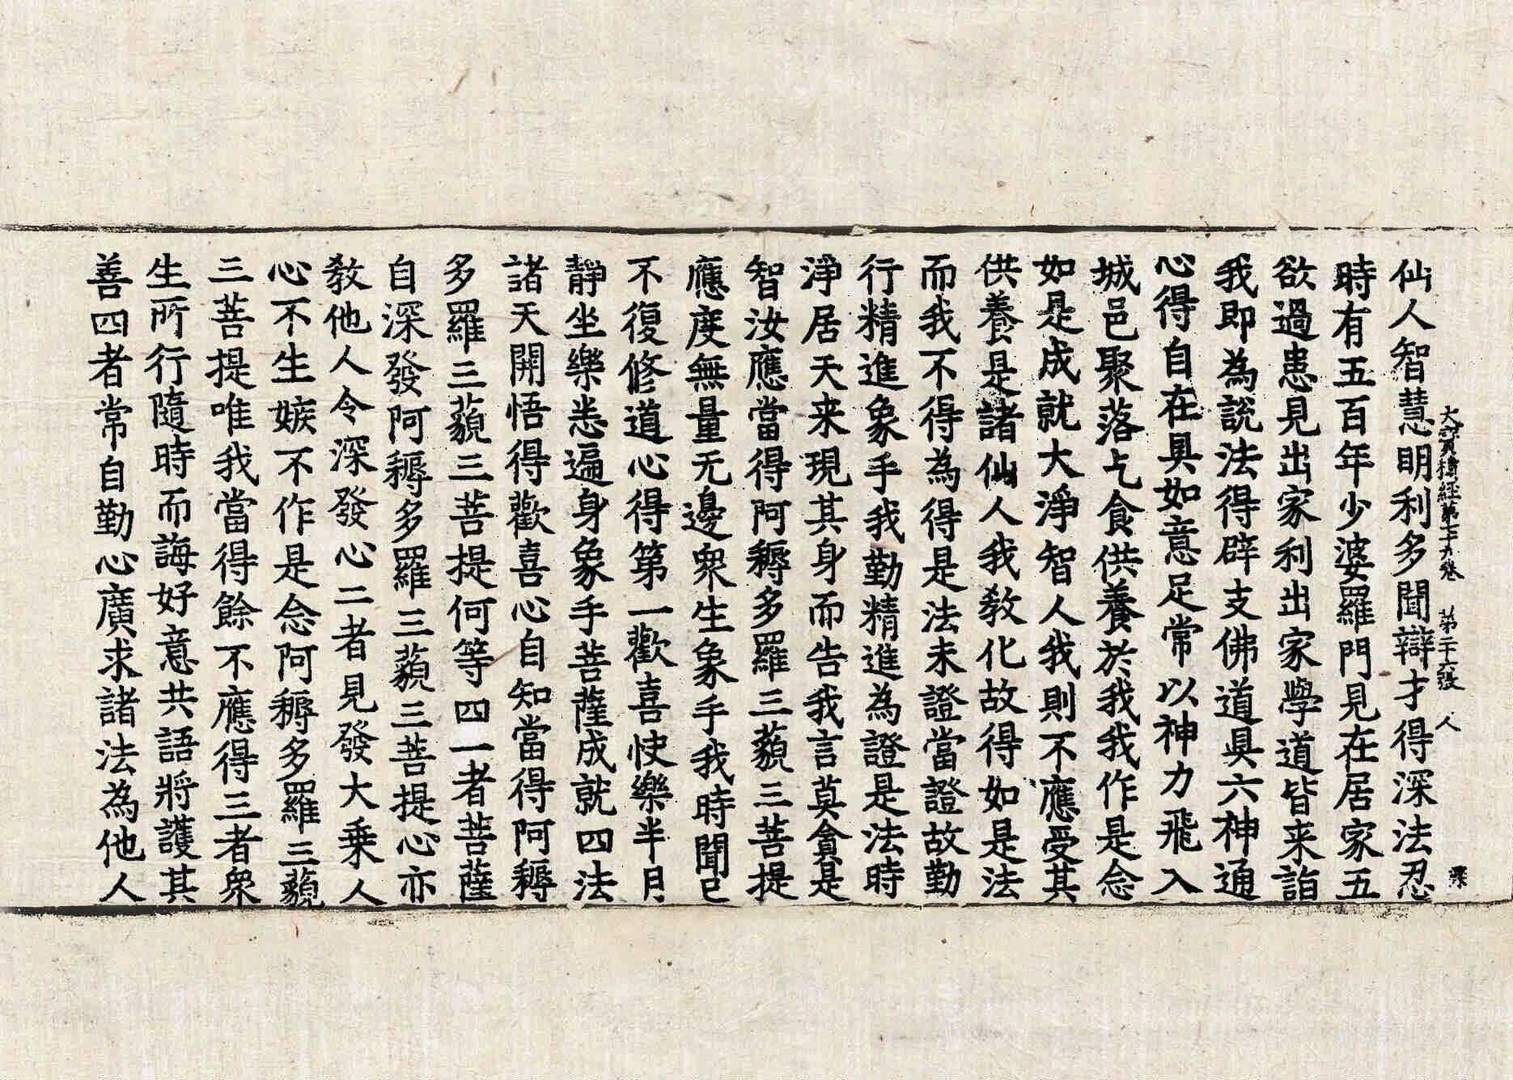 仙人智慧明利多聞辯才得深法忍
大寶積經第七十九卷 第二十六張 人
時有五百年少婆羅門見在居家五
欲過患見出家利出家學道皆来詣
我即為説法得辟支佛道具六神通
心得自在具如意足常以神力飛入
城邑聚落乞食供養於我我作是念
如是成就大淨智人我則不應受其
供養是諸仙人我教化故得如是法
而我不得為得是法未證當證故勤
行精進象手我勤精進為證是法時
淨居天来現其身而告我言莫貪是
智汝應當得阿耨多羅三藐三菩提
應度無量无邊衆生象手我時聞已
不復修道心得第一歡喜快樂半月
静坐樂悉遍身象手菩薩成就四法
諸天開悟得歡喜心自知當得阿耨
多羅三藐三菩提何等四一者菩薩
自深發阿耨多羅三藐三菩提心亦
教他人令深發心二者見發大乗人
心不生嫉不作是念阿耨多羅三藐
三菩提唯我當得餘不應得三者衆
生所行隨時而誨好意共語將護其
善四者常自勤心廣求諸法為他人